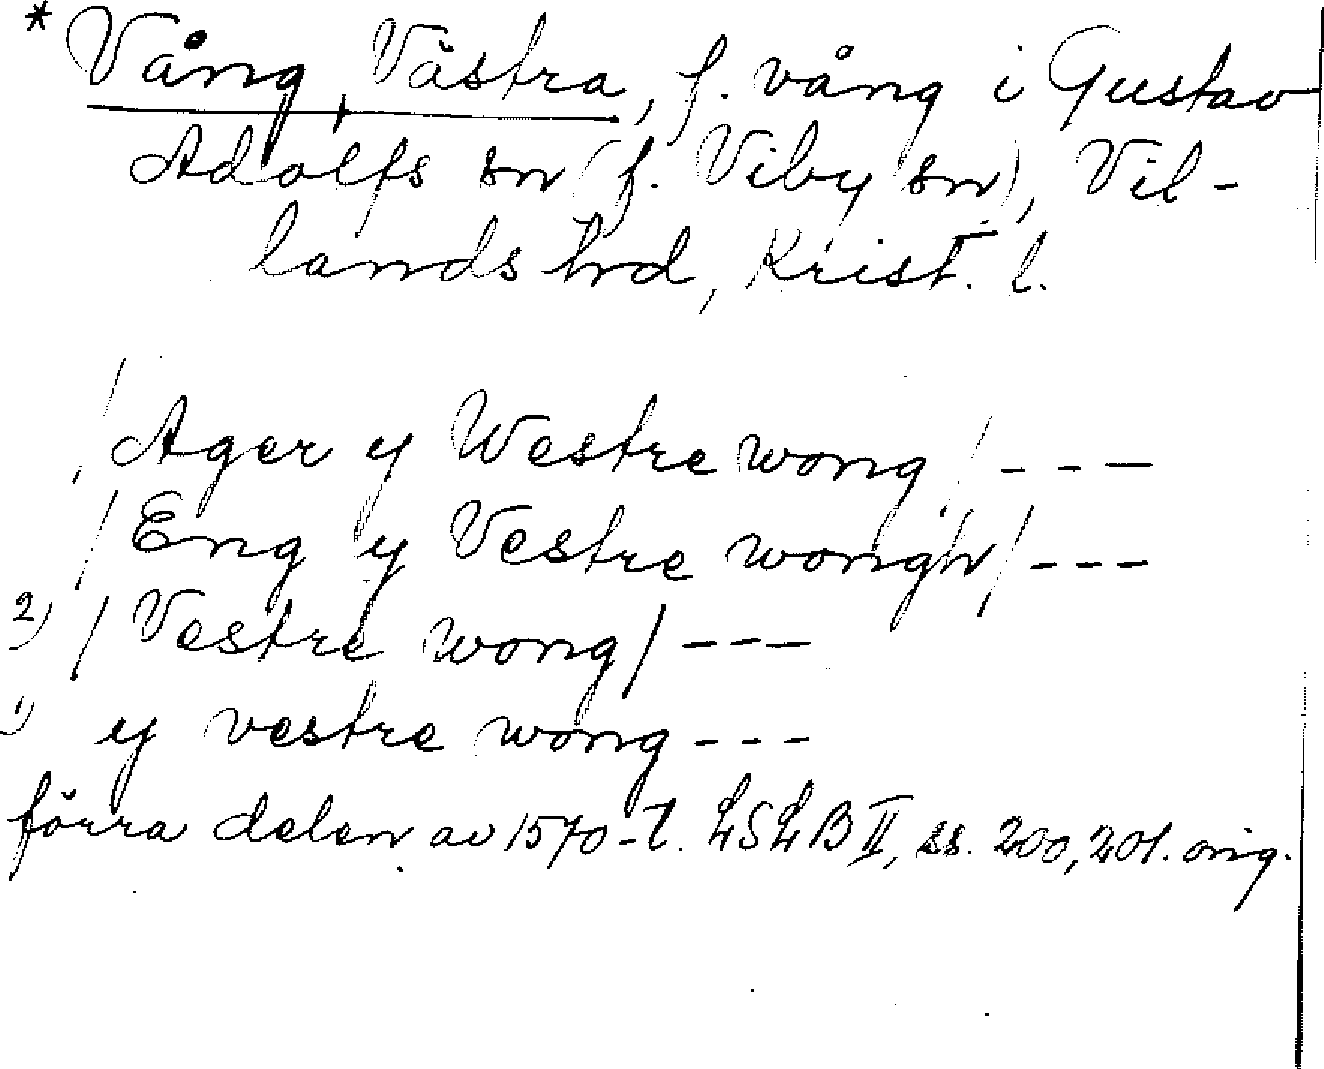 * Vång, Västra, f. vång i Gustav
Adolfs sn (f. Viby sn), Vil-
lands hrd, Krist. l.
/Ager y Westre wong/ - - -
/Eng y Vestre wongh/ - - -
2) /Vestre wong/ - - -
1) y vestre wong - - -
förra delen av 1570-t. LSLB II, ss. 200, 201. orig.